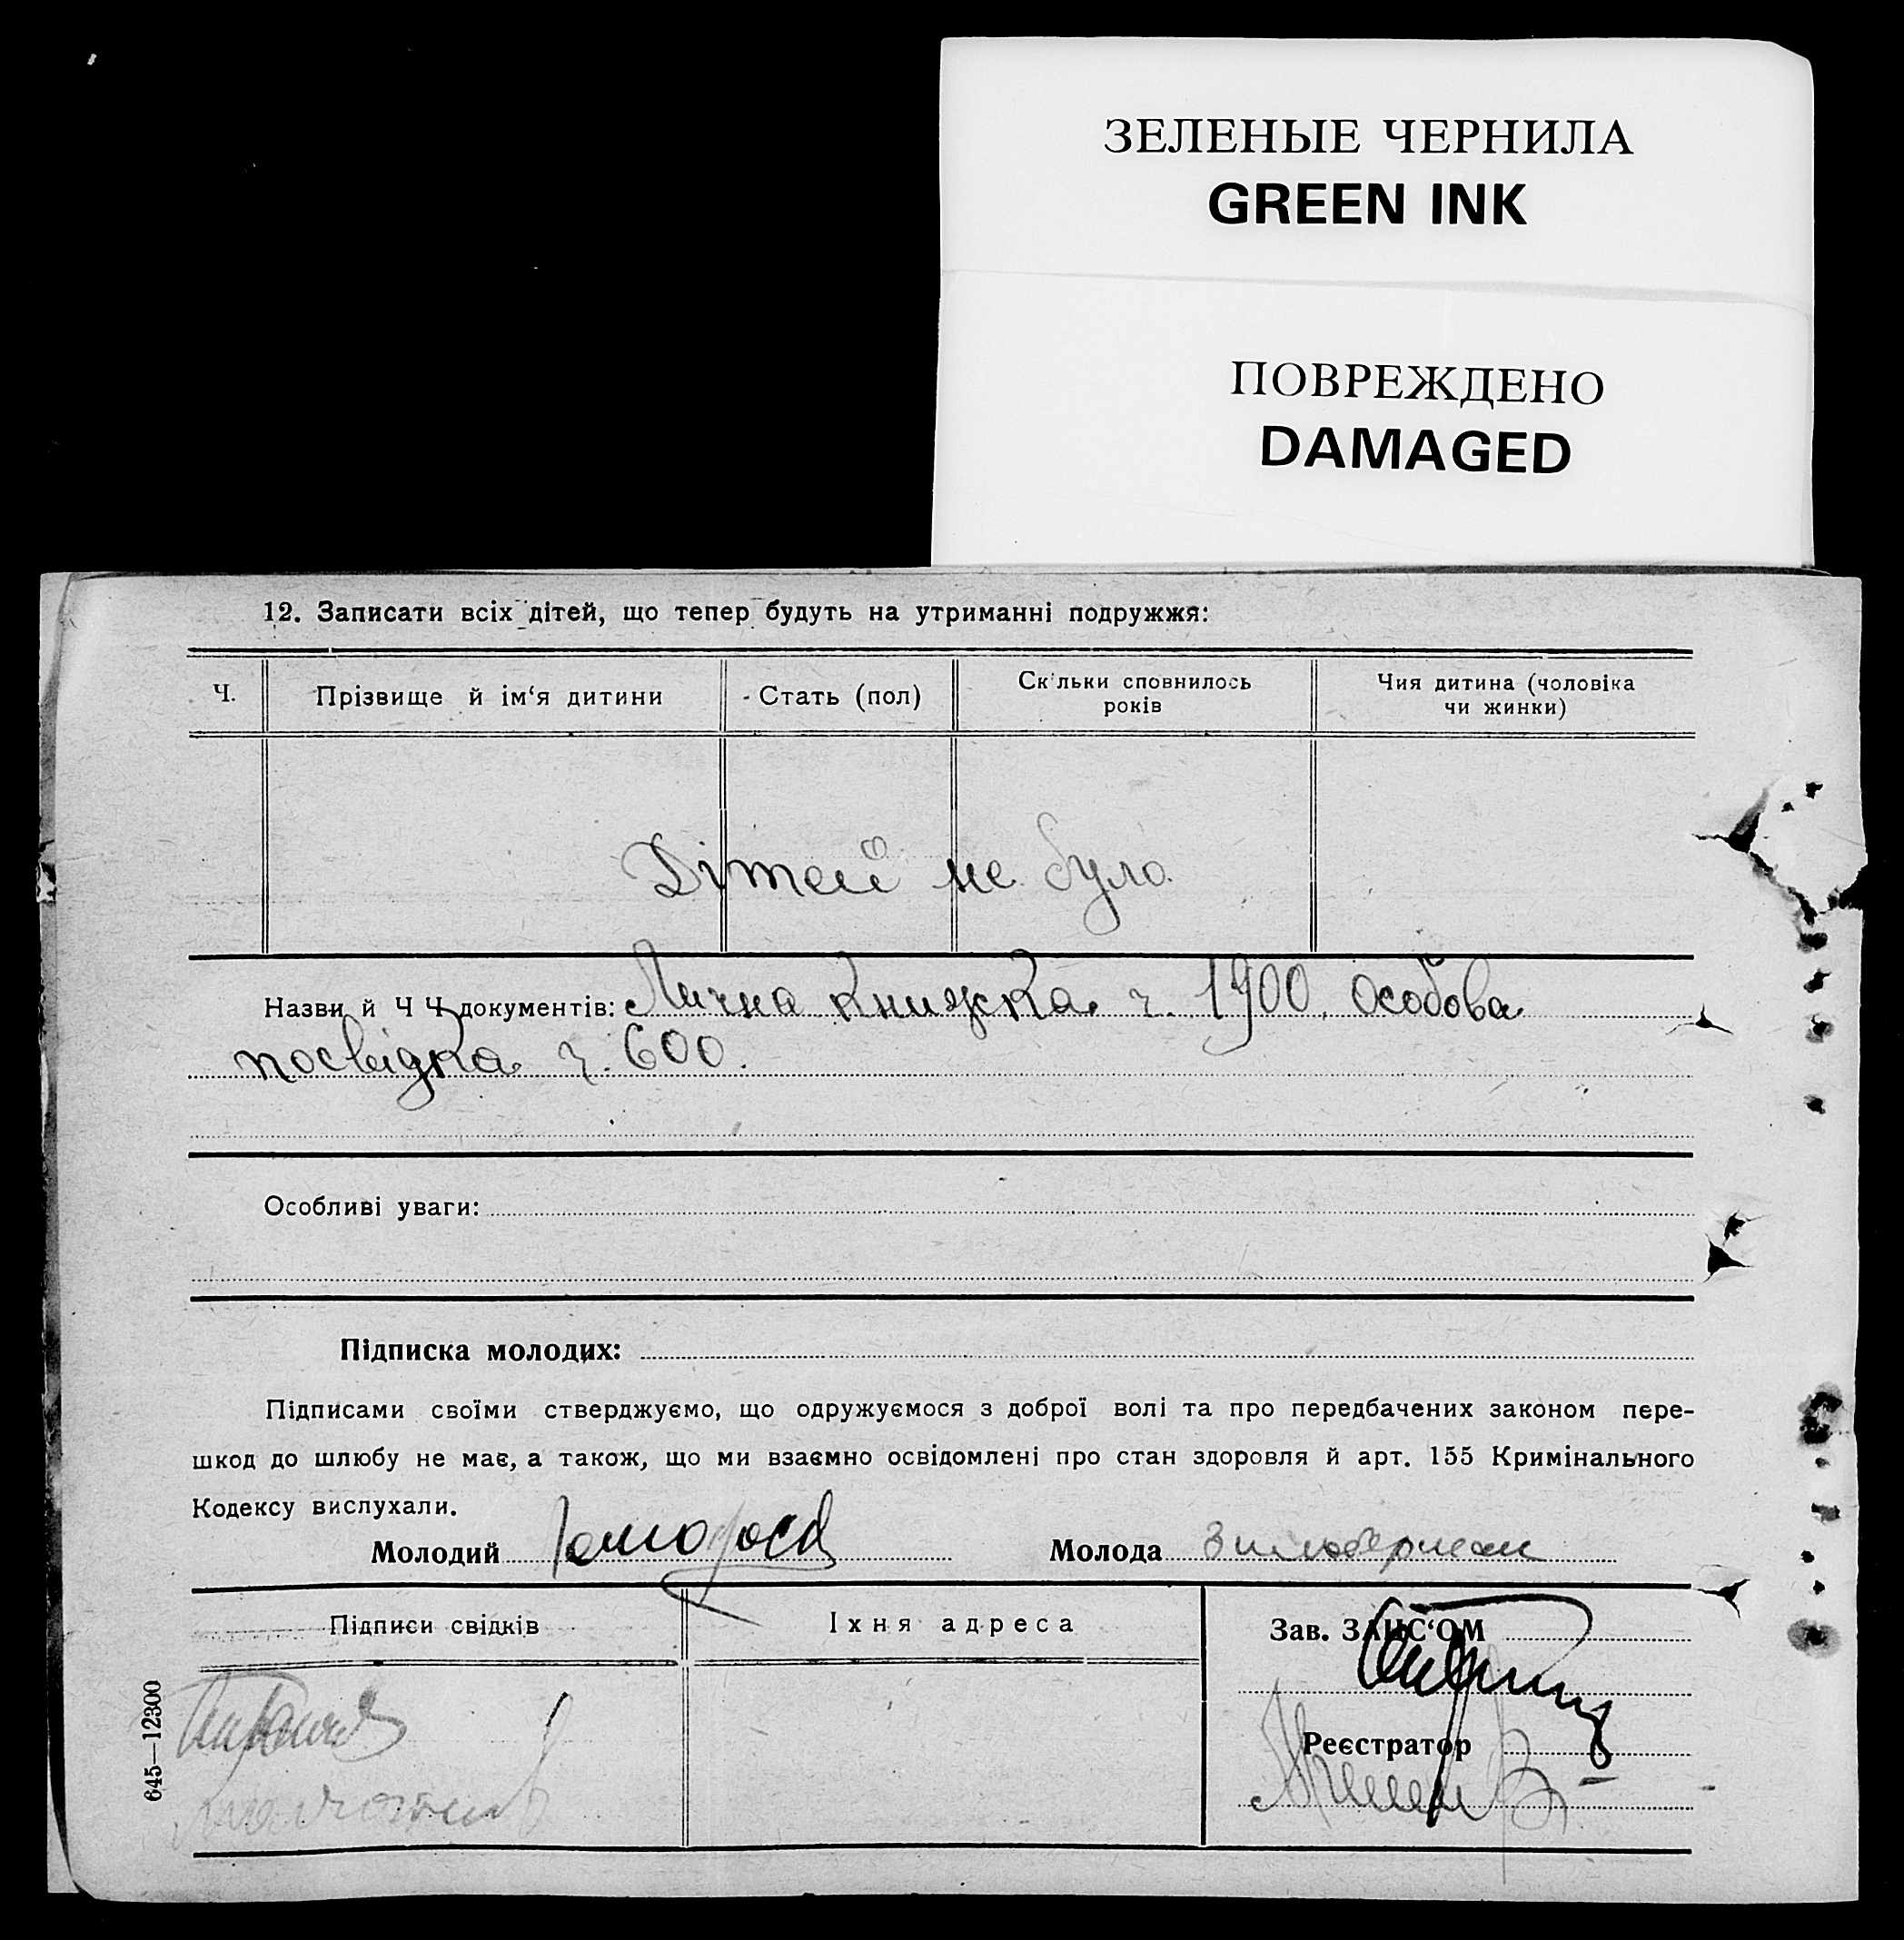 ЗЕЛЕНЫЕ ЧЕРНИЛА
GREEN INK
ПОВРЕЖДЕНО
DAMAGED
12. Записати всіх дітей, що тепер будуть на утриманні подружжя:
Ч.
Прізвище й ім‘я дитини
Стать (пол)
Скільки сповнилось
років
Чия дитина (чоловіка
чи жинки)
Дітей не було
Назви й Ч Ч документів: Лична книжка ч. 1900. Особова
посвідка ч. 600.
Особливі уваги:
Підписка молодих:
Підписами своїми стверджуємо, що одружуємося з доброї волі та про передбачених законом пере-
шкод до шлюбу не має, а також, що ми взаємно освідомлені про стан здоровля й арт. 155 Кримінального
Кодексу вислухали.
Молодий
Молода Зильберман
Підписи свідків
Їхня адреса
Зав. ЗАГС‘ОМ
Реєстратор
645—12300